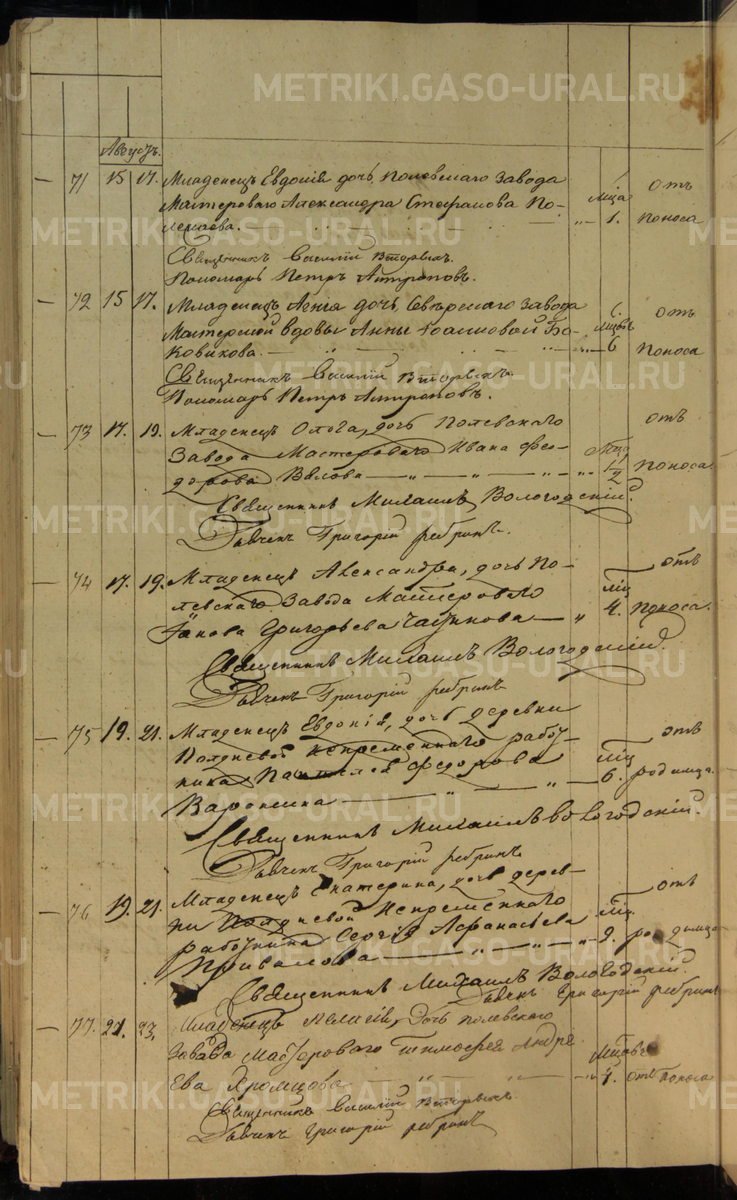 METRIKI.GASO-URAL.RU
Августъ.
71 15 17. Младенецъ Евдокія дочь Полевскаго Завода
Мастероваго Александра Стефанова По-
лежаева. 1. Мѣца отъ поноса
Священникъ Василій Вторыхъ.
Пономарь Петръ Антроповъ.
72 15 17. Младенецъ дочь Сѣверскаго Завода
Мастерской вдовы Анны Іоанновой Ба-
ковикова. 6 отъ поноса
Священникъ Василій Вторыхъ.
Пономарь Петръ Антроповъ.
73 17. 19. Младенецъ Ольга, дочь Полевскаго
Завода Мастероваго Ивана Фео-
дорова Вялова 1/2 отъ поноса
Священникъ Михаилъ Вологодскій.
Дьячекъ Григорій Ребринъ.
74 17. 19. Младенецъ Александра, дочь По-
левскаго Завода Мастероваго
Іакова Григорьева мц 4. отъ поноса.
Священникъ Михаилъ Вологодскій.
Дьячекъ Григорій Ребринъ
75 19. 21. Младенецъ Евдокія, дочь деревни
Полдневой непременнаго работ-
ника Федорова мц 6. отъ родимца.
Воронина
Священникъ Михаилъ Вологодскій.
Дьячекъ Григорій Ребринъ
76 19. 21. Младенецъ Екатерина, дочь дерев-
ни Полдневой Непременнаго
работника Сергія Афанасьева мц 9. отъ родимца
Привалова
Священникъ Михаилъ Вологодскій.
Дьячекъ Григорій Ребринъ
77. 21. 23. Младенецъ дочь Полевскаго
завода Мастероваго Тимофея Андре
ева Яромцова 4. отъ поноса
Священникъ Василій Вторыхъ.
Дьячекъ Григорій Ребринъ